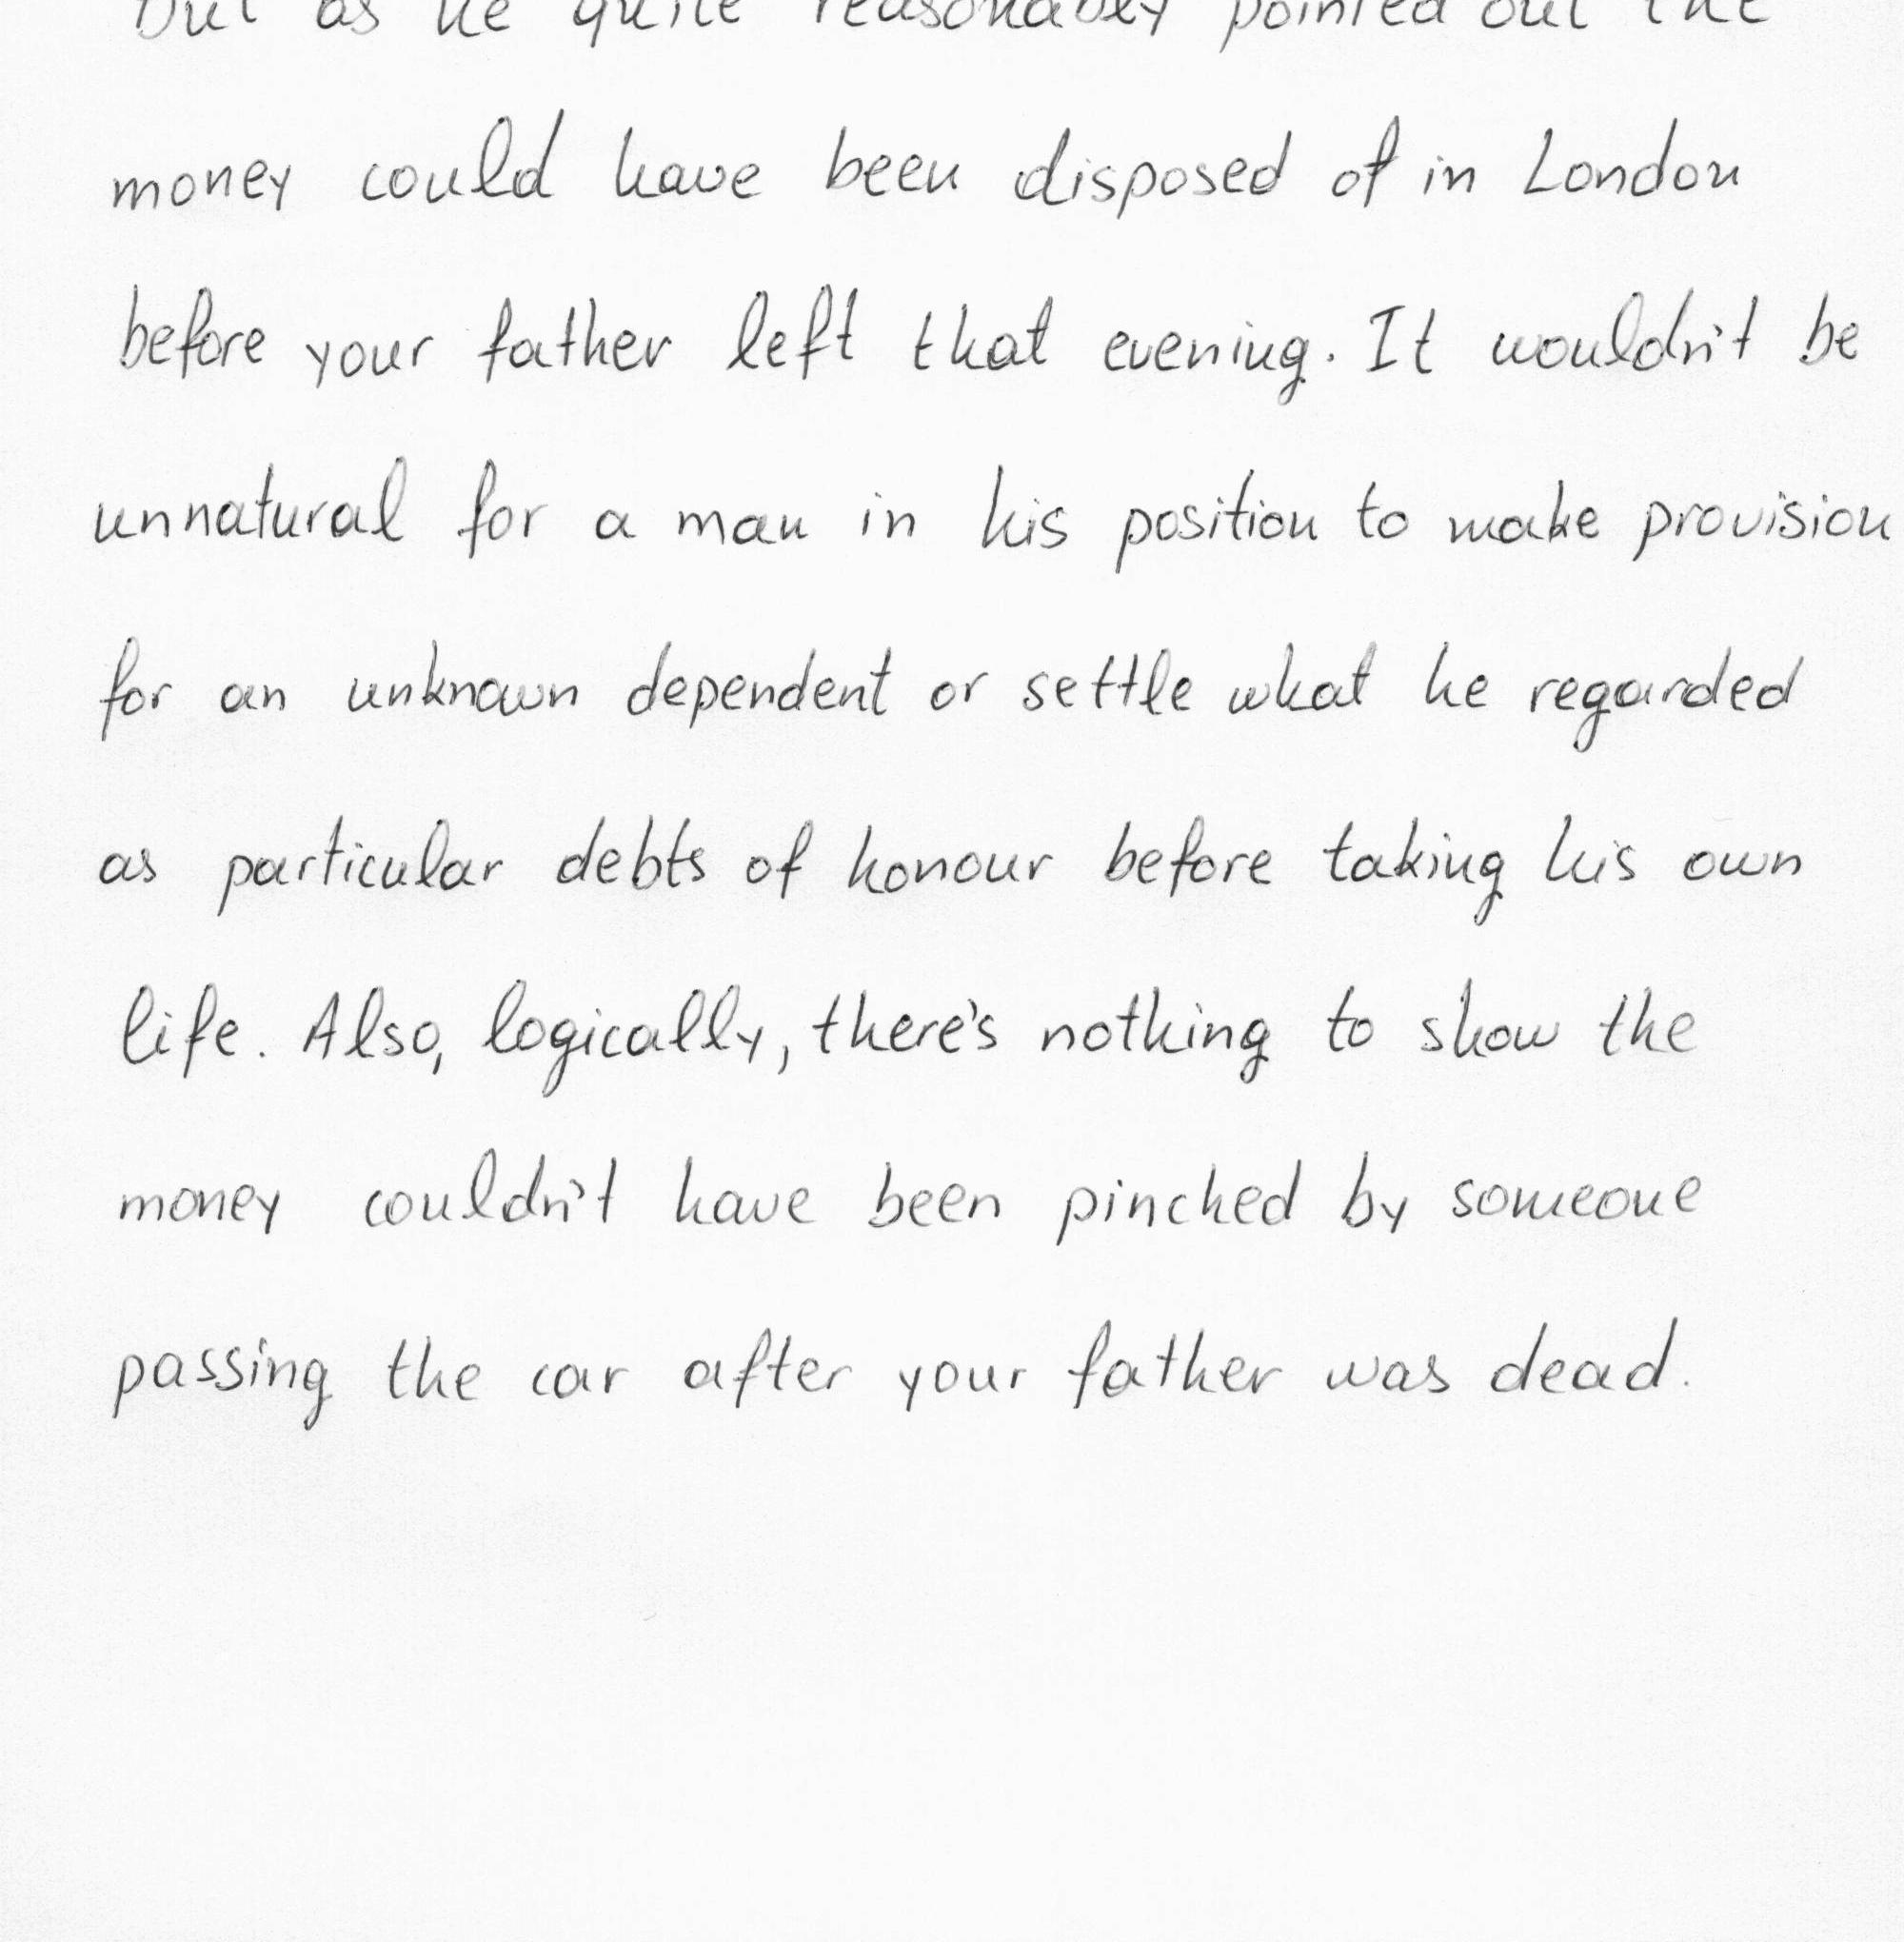 but as he quite reasonably pointed out the
money could have been disposed of in London
before your father left that evening. It wouldn't be
unnatural for a man in his position to make provision
for an unknown dependent or settle what he regarded
as particular debts of honour before taking his own
life. Also, logically, there's nothing to show the
money couldn't have been pinched by someone
passing the car after your father was dead.